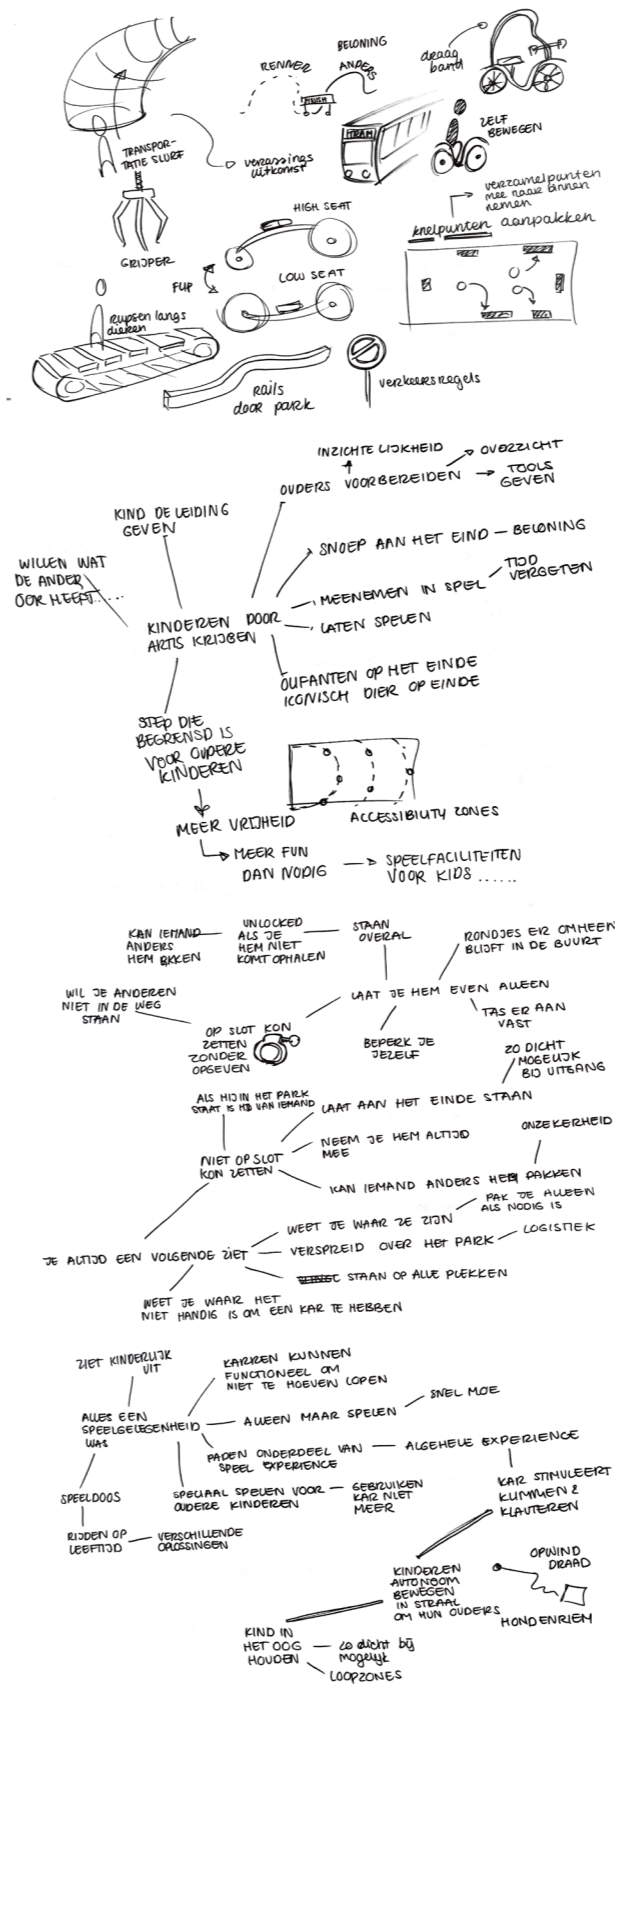 BELONING
RENNEN
ANDERS
FINISH
draag
band
TRAM
ZELF
BEWEGEN
TRANSPOR-
TATIE SLURF
verassings
uitkomst
verzamelpunten
mee naar binnen
nemen
knelpunten aanpakken
HIGH SEAT
GRIJPER
FLIP
LOW SEAT
Rupsen langs
dieren
rails
door park
verkeersregels
INZICHTELIJKHEID
OVERZICHT
OUDERS VOORBEREIDEN
TOOLS
GEVEN
KIND DE LEIDING
GEVEN
SNOEP AAN HET EIND - BELONING
WILLEN WAT
DE ANDER
OOK HEEFT.....
TIJD
VERGETEN
MEENEMEN IN SPEL
KINDEREN DOOR
ARTIS KRIJGEN
LATEN SPELEN
OLIFANTEN OP HET EINDE
ICONISCH DIER OP EINDE
STEP DIE
BEGRENSD IS
VOOR OUDERE
KINDEREN
ACCESSIBILITY ZONES
MEER VRIJHEID
MEER FUN
DAN NODIG
SPEELFACILITEITEN
VOOR KIDS ......
KAN IEMAND
ANDERS
HEM PIKKEN
UNLOCKED
ALS JE
HEM NIET
KOMT OPHALEN
STAAN
OVERAL
RONDJES ER OMHEEN
BLIJFT IN DE BUURT
WIL JE ANDEREN
NIET IN DE WEG
STAAN
LAAT JE HEM EVEN ALLEEN
TAS ER AAN
VAST
OP SLOT KON
ZETTEN
ZONDER
OPGEVEN
BEPERK JE
JEZELF
ZO DICHT
MOGELIJK
BIJ UITGANG
ALS HIJ IN HET PARK
STAAT IS HIJ VAN IEMAND
LAAT AAN HET EINDE STAAN
NEEM JE HEM ALTIJD
MEE
ONZEKERHEID
NIET OP SLOT
KON ZETTEN
KAN IEMAND ANDERS HEM PAKKEN
PAK JE ALLEEN
ALS NODIG IS
WEET JE WAAR ZE ZIJN
JE ALTIJD EEN VOLGENDE ZIET
VERSPREID OVER HET PARK
LOGISTIEK
STAAN OP ALLE PLEKKEN
WEET JE WAAR HET
NIET HANDIG IS OM EEN KAR TE HEBBEN
ZIET KINDERLIJK
UIT
KARREN KUNNEN
FUNCTIONEEL OM
NIET TE HOEVEN LOPEN
ALLES EEN
SPEELGELEGENHEID
WAS
ALLEEN MAAR SPELEN
SNEL MOE
PADEN ONDERDEEL VAN
SPEEL EXPERIENCE
ALGEHELE EXPERIENCE
SPEELDOOS
SPECIAAL SPELEN VOOR
OUDERE KINDEREN
GEBRUIKEN
KAR NIET
MEER
KAR STIMULEERT
KLIMMEN &
KLAUTEREN
RIJDEN OP
LEEFTIJD
VERSCHILLENDE
OPLOSSINGEN
KINDEREN
AUTONOOM
BEWEGEN
IN STRAAL
OM HUN OUDERS
OPWIND
DRAAD
HONDENRIEM
KIND IN
HET OOG
HOUDEN
zo dicht bij
mogelijk
LOOPZONES